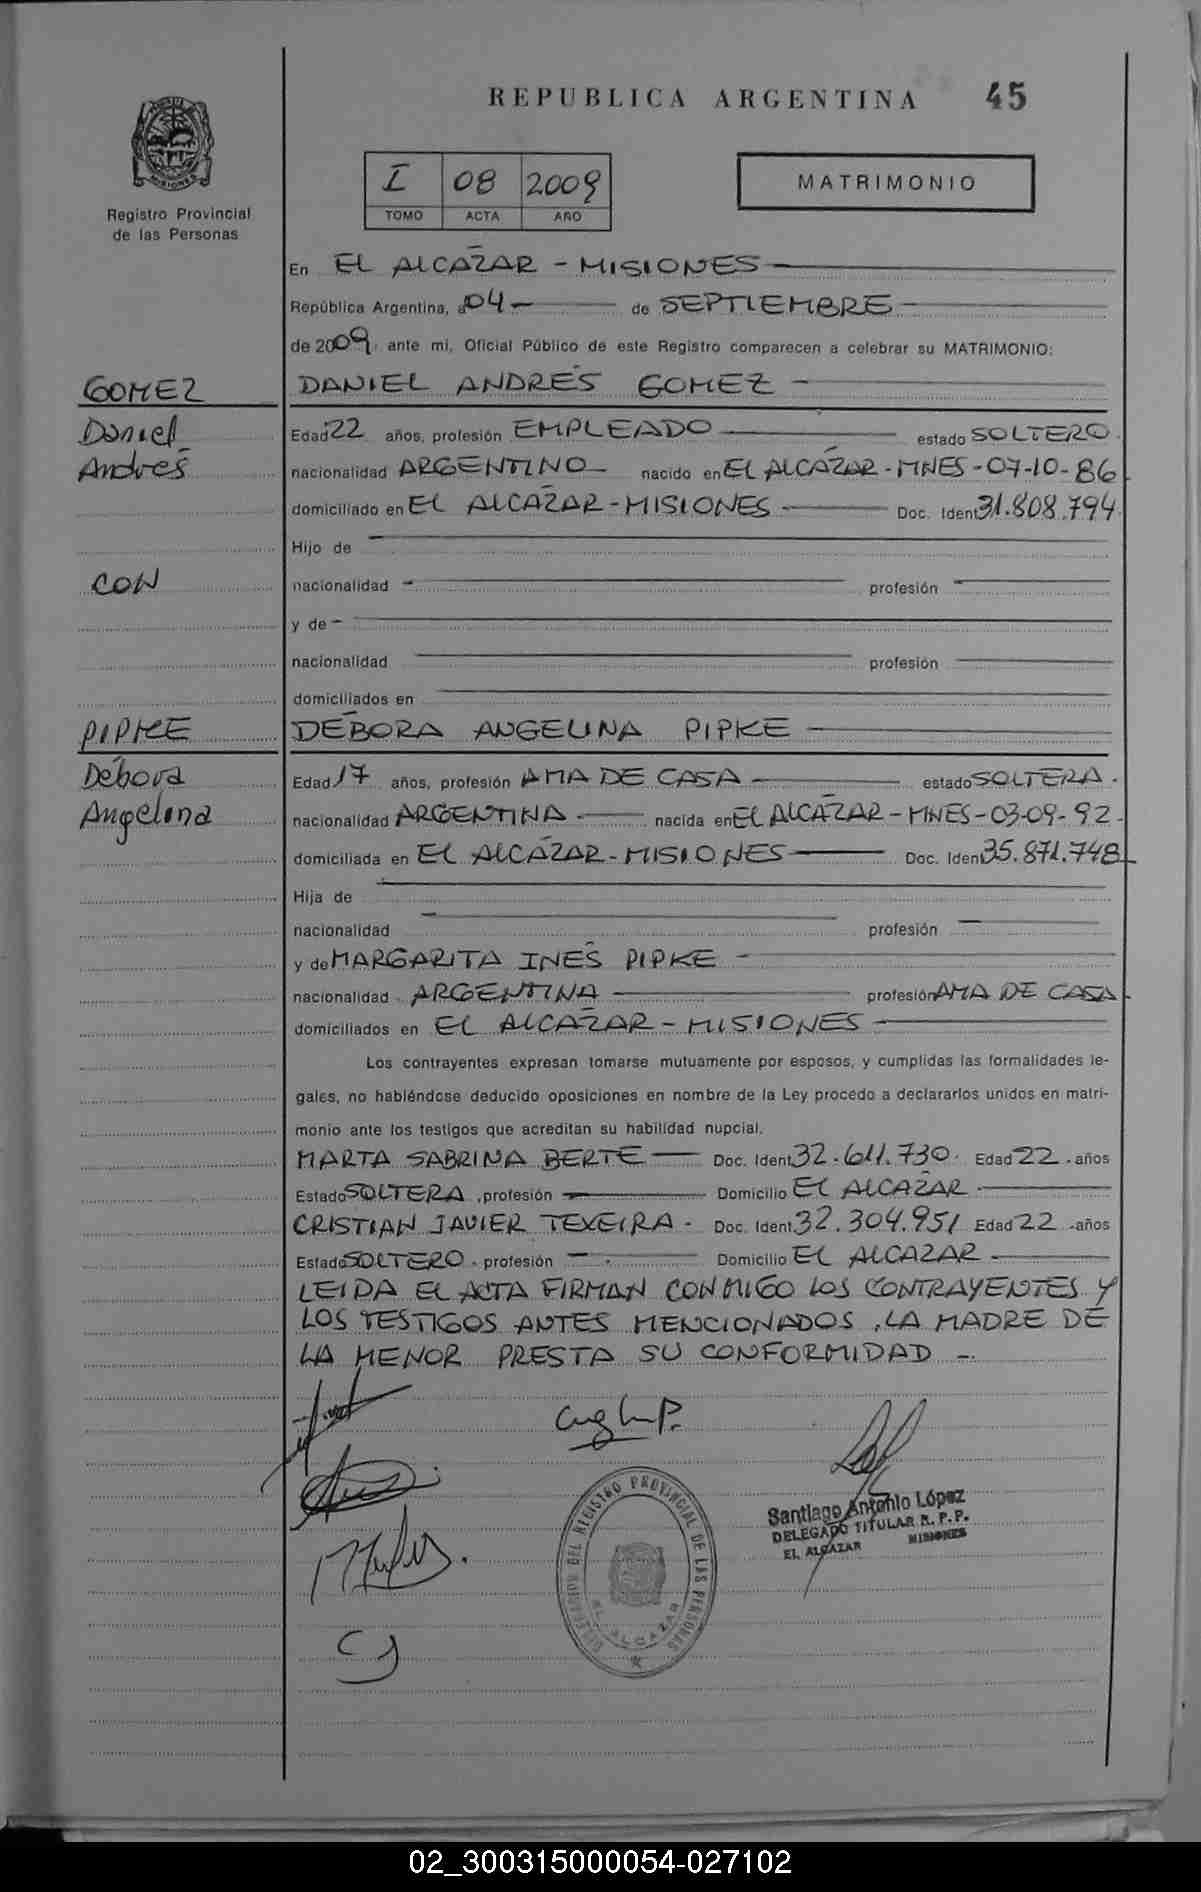 REPUBLICA ARGENTINA 45
I 08 2009
TOMO ACTA AÑO
MATRIMONIO
MISIONES
Registro Provincial
de las Personas
En EL ALCAZAR - MISIONES
República Argentina, a 04 - de SEPTIEMBRE
de 2009, ante mi, Oficial Público de este Registro comparecen a celebrar su MATRIMONIO:
GOMEZ DANIEL ANDRES GOMEZ -
Daniel Edad 22 años, profesión EMPLEADO estado SOLTERO.
Andrés nacionalidad ARGENTINO nacido en EL ALCÁZAR - MNES - 07-10-86
domiciliado en EL ALCÁZAR - MISIONES Doc. Ident 31.808.794
Hijo de
CON nacionalidad profesión
y de
nacionalidad profesión
domiciliados en
PIPKE DÉBORA ANGELINA PIPKE
Débora Edad 17 años, profesión AMA DE CASA estado SOLTERA.
Angelina nacionalidad ARGENTINA nacida en EL ALCÁZAR - MNES - 03-09-92
domiciliada en EL ALCÁZAR - MISIONES Doc. Iden 35.871.748
Hija de
nacionalidad profesión
y de MARGARITA INÉS PIPKE -
nacionalidad ARGENTINA profesión AMA DE CASA
domiciliados en EL ALCÁZAR - MISIONES
Los contrayentes expresan tomarse mutuamente por esposos, y cumplidas las formalidades le-
gales, no habiéndose deducido oposiciones en nombre de la Ley procedo a declararlos unidos en matri-
monio ante los testigos que acreditan su habilidad nupcial.
MARTA SABRINA BERTE Doc. Ident 32.611.730. Edad 22 años
Estado SOLTERA, profesión Domicilio EL ALCAZAR
CRISTIAN JAVIER TEXEIRA - Doc. Ident 32.304.951 Edad 22 años
Estado SOLTERO, profesión Domicilio EL ALCAZAR
LEIDA EL ACTA FIRMAN CONMIGO LOS CONTRAYENTES Y
LOS TESTIGOS ANTES MENCIONADOS, LA MADRE DE
LA MENOR PRESTA SU CONFORMIDAD -.
DELEGACION DEL REGISTRO PROVINCIAL DE LAS PERSONAS
EL ALCAZAR
Santiago Antonio López
DELEGADO TITULAR R. P. P.
EL ALCAZAR MISIONES
02_300315000054-027102